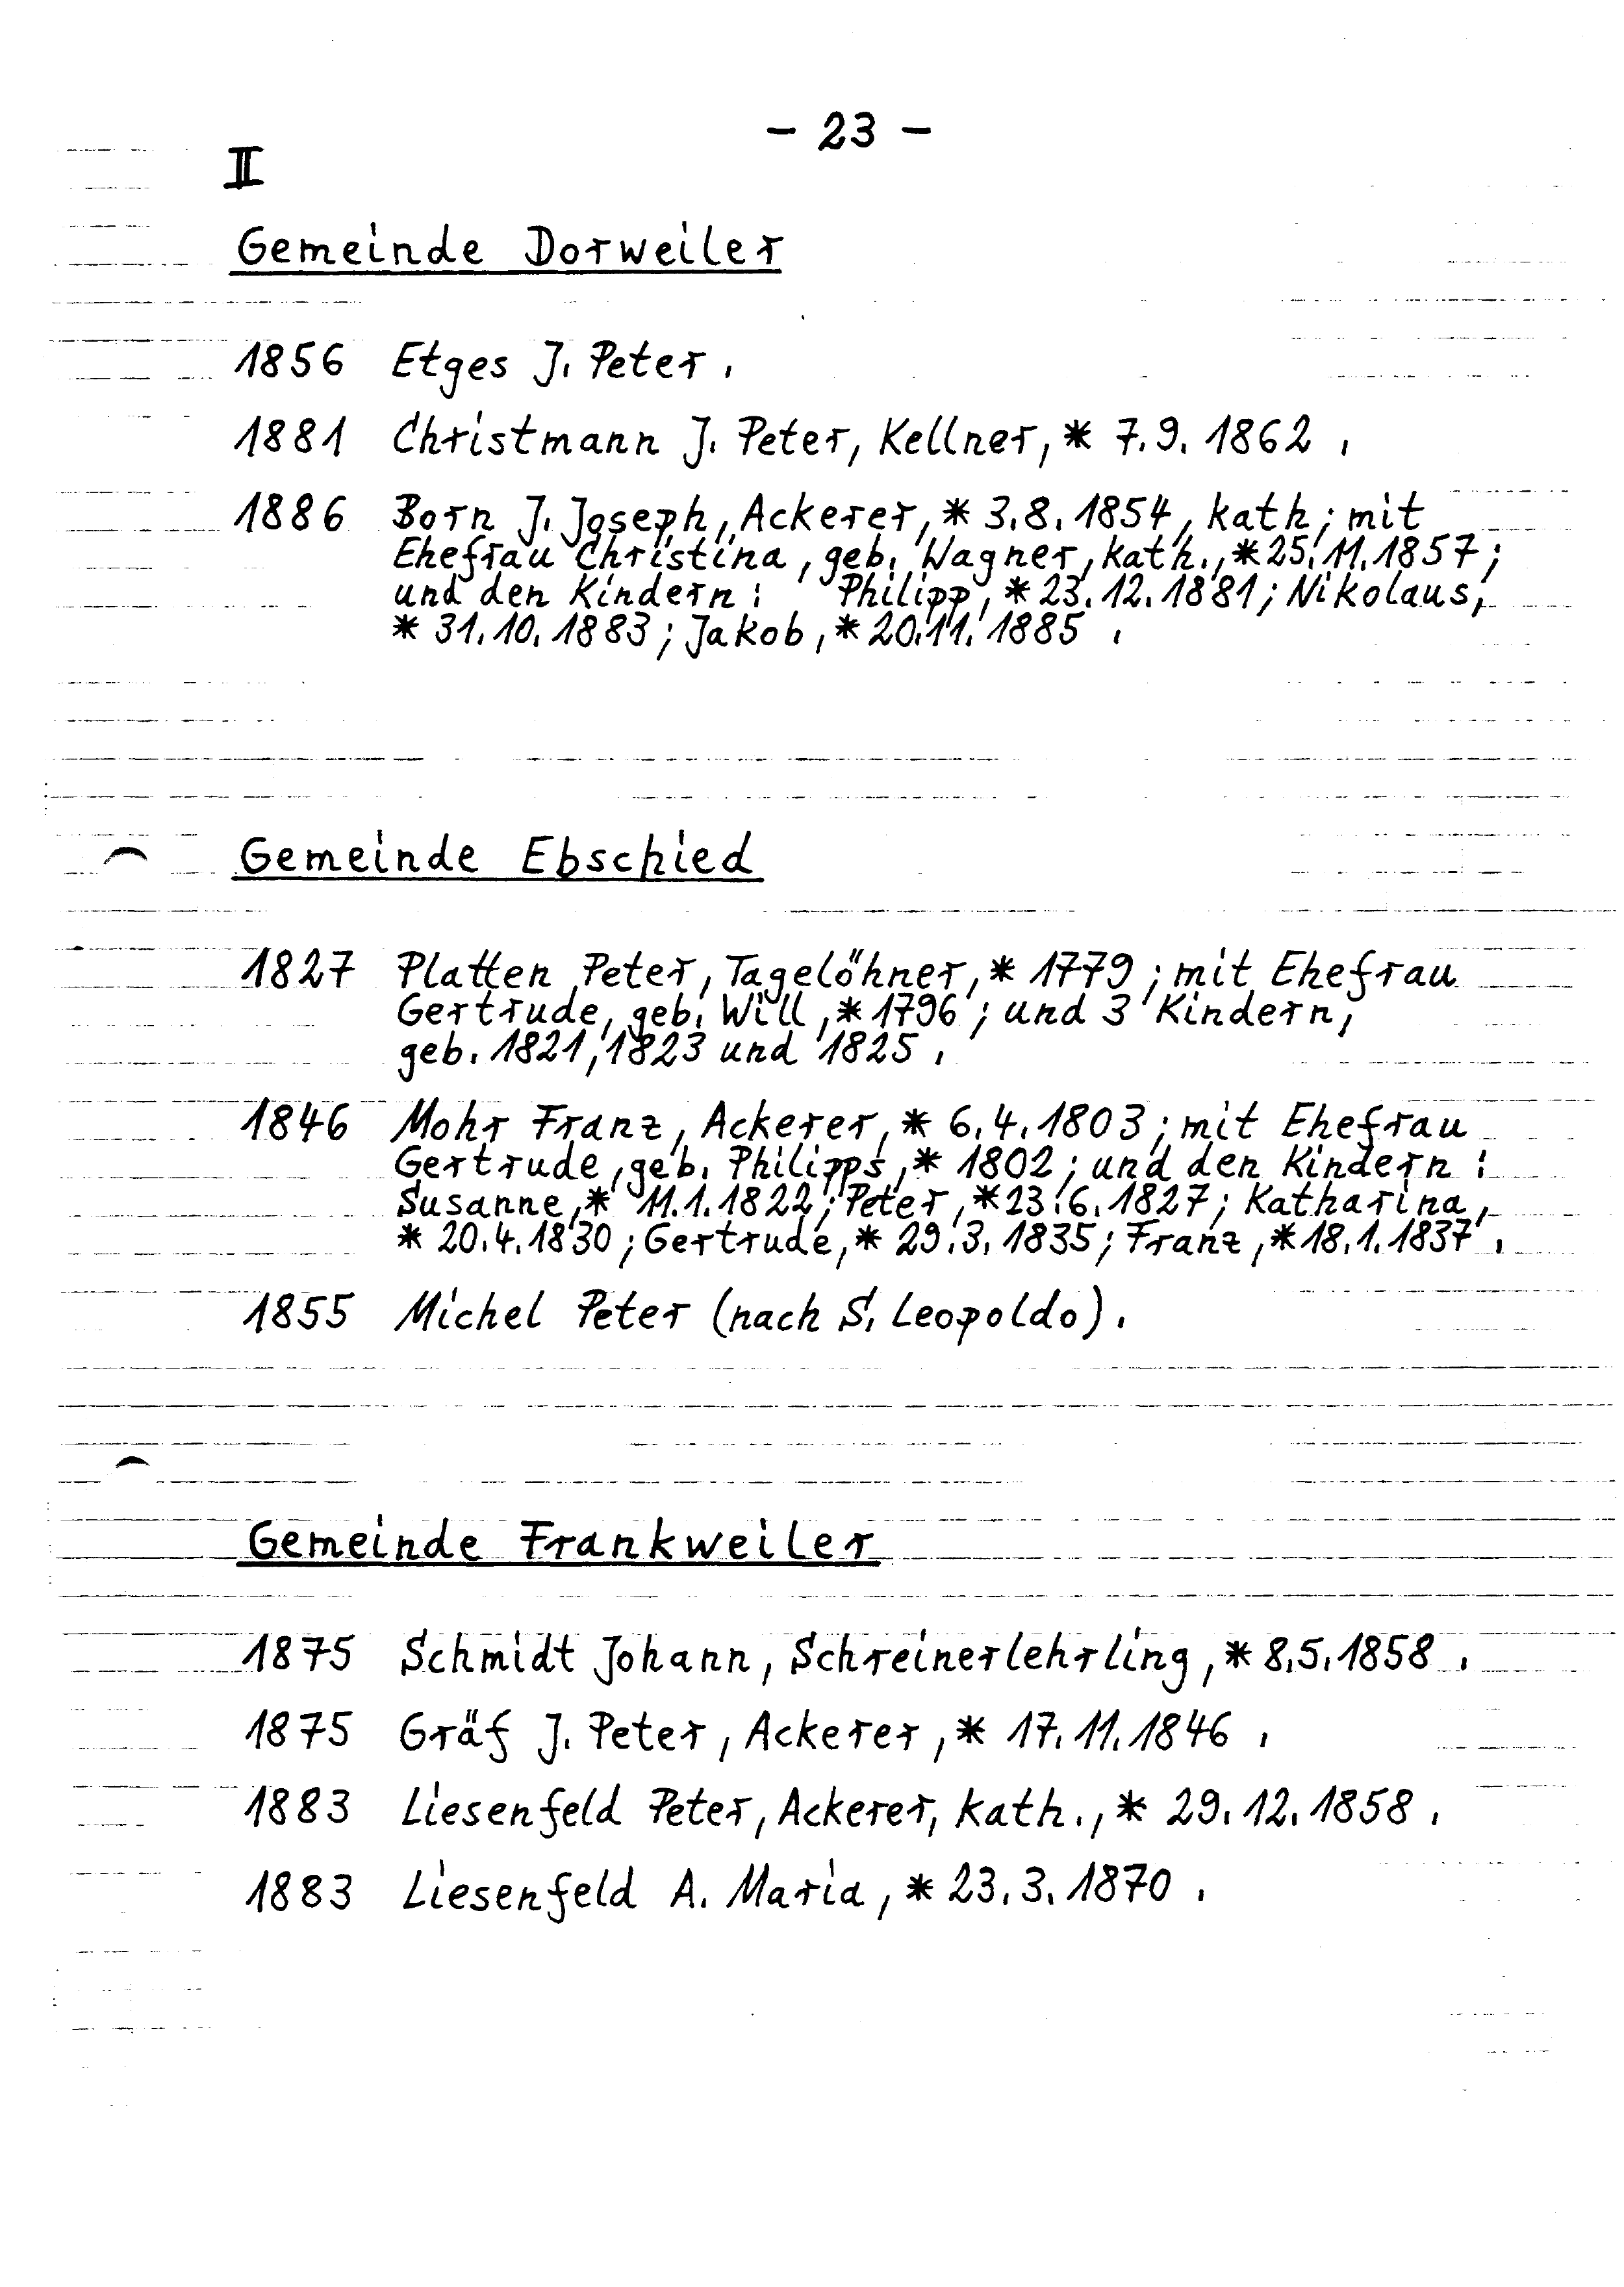 - 23 -
II
Gemeinde Dorweiler
1856 Etges J. Peter.
1881 Christmann J. Peter, Kellner, * 7.9.1862.
1886 Born J. Joseph, Ackerer, * 3.8.1854, kath; mit
Ehefrau Christina, geb. Wagner, kath., * 25.11.1857;
und den Kindern: Philipp, * 23.12.1881; Nikolaus,
* 31.10.1883; Jakob, * 20.11.1885.
Gemeinde Ebschied
1827 Platten Peter, Tagelöhner, * 1779; mit Ehefrau
Gertrude, geb. Will, * 1796; und 3 Kindern,
geb. 1821, 1823 und 1825.
1846 Mohr Franz, Ackerer, * 6.4.1803; mit Ehefrau
Gertrude, geb. Philipps, * 1802; und den Kindern:
Susanne, * 11.1.1822; Peter, * 23.6.1827; Katharina,
* 20.4.1830; Gertrude, * 29.3.1835; Franz, * 18.1.1837.
1855 Michel Peter (nach S. Leopoldo).
Gemeinde Frankweiler
1875 Schmidt Johann, Schreinerlehrling, * 8.5.1858.
1875 Gräf J. Peter, Ackerer, * 17.11.1846.
1883 Liesenfeld Peter, Ackerer, kath., * 29.12.1858.
1883 Liesenfeld A. Maria, * 23.3.1870.